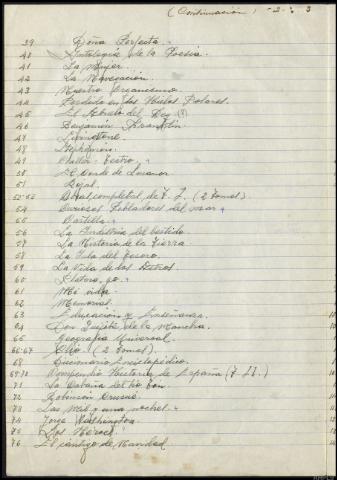 (Continuación) -2- 3
39 Doña Perfecta.
40 Antología de la Poesía.
41 La Mujer.
42 La Navegación.
43 Nuestro Organismo.
44 Perdido en los Hielos Polares.
45 El Abuelo del Rey (?)
46 Benjamín Franklin
47 Livingstone.
48 Stephenson.
49 Teatro.
50 El Conde de Lucanor
51 
52-53 Obras completas de F. L. (2 Tomos)
54 Curiosos Pobladores del mar
55 Cartilla
56 La Industria del Vestido
57 La Historia de la Tierra
58 La Isla del Tesoro.
59 La Vida de los Astros.
60 Platero y yo.
61 Mi vida.
62 Memorial.
63 Educación y Enseñanza.
64 Don Quijote de la Mancha.
65 Geografía Universal
66-67 (2 Tomos).
68 Diccionario Enciclopédico.
69-71 Compendio Historia de España (
71 La Cabaña del tío Tom.
72 Robinson Crusoe
73 Las Mil y una noches.
74 Jorge Washington
75 Los Héroes
76 El cántico de Navidad